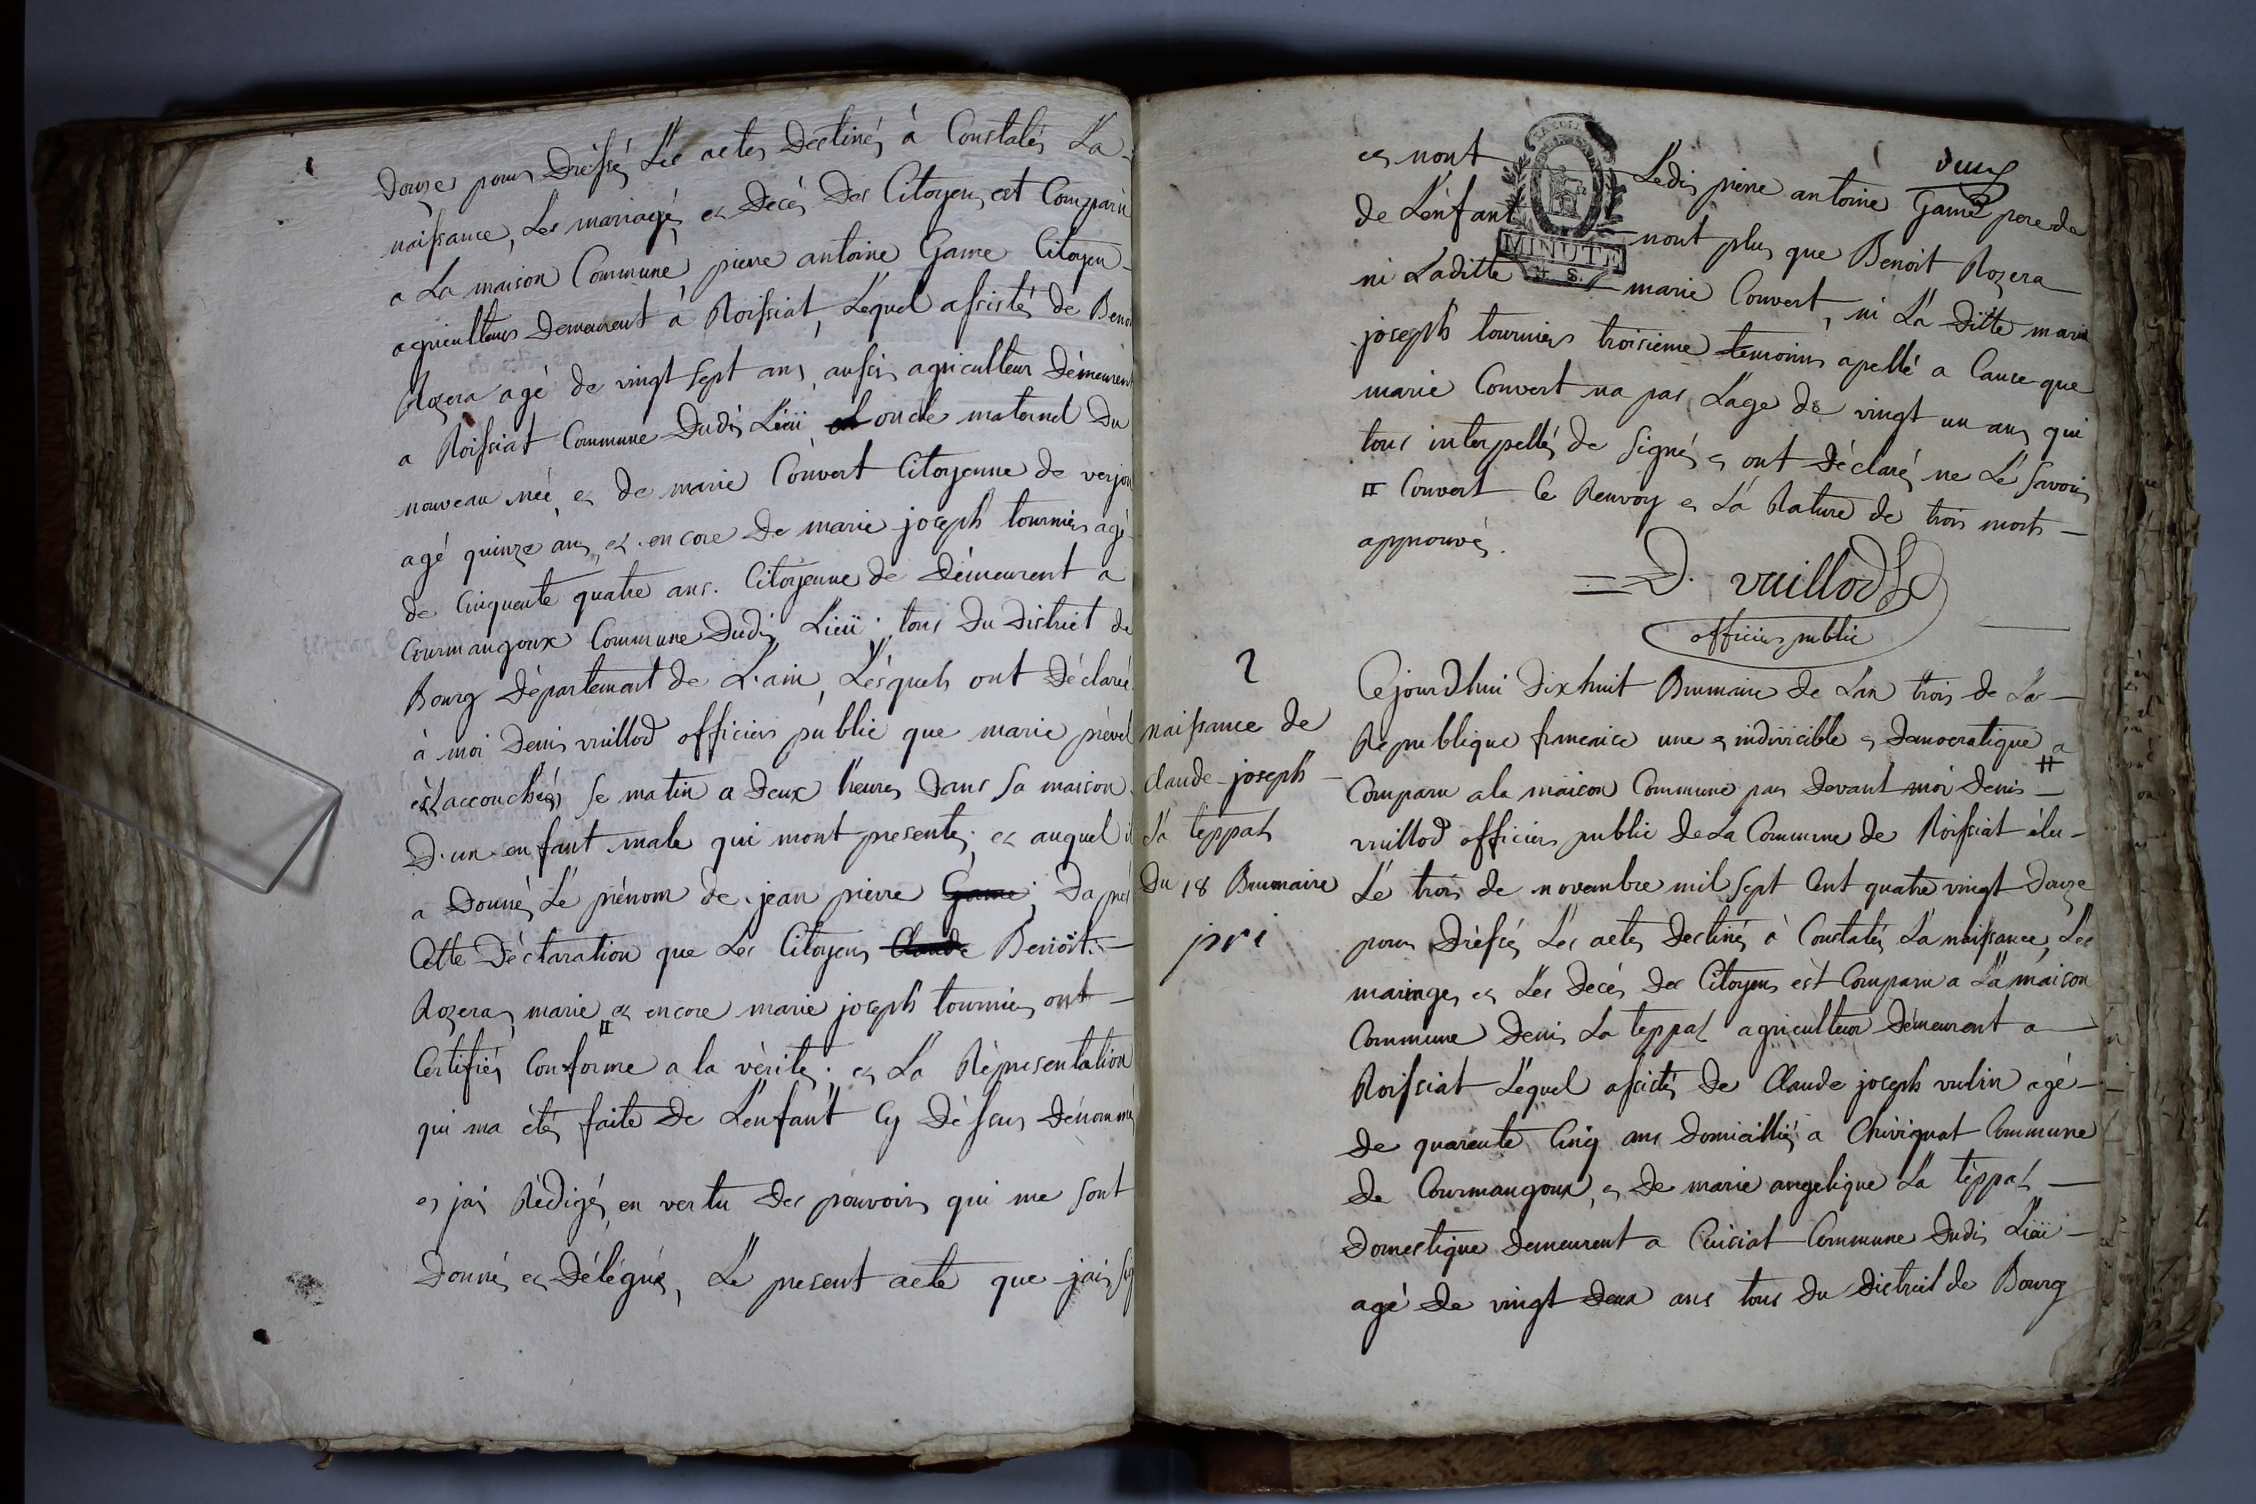 Douze pour Dressés Les actes Destinés à Constatés La
naissance, Les mariages et Decés Des Citoyens est Comparu
a La maison Commune pierre antoine Game Citoyen
agriculteur Demeurent à Roissiat, Lequel assistés de Benoit
Rozera agé de vingt sept ans, aussi agriculteur Démeurent
a Roissiat Commune Dudit Lieü oncle maternel Du
nouveau née, et de marie Convert Citoyenne de verjon
agé quinze ans, et encore De marie joseph tournier agé
de Cinquente quatre ans. Citoyenne de Démeurent a
Courmangoux Commune Dudit Lieü. tous Du District de
Bourg Département de L'ain, Lésquels ont Déclarés
à moi Denis vuillod officier public que marie prével
èst accouchés se matin a Deux heures Dans sa maison
D'un enfant male qui mont presentés, et auquel il
a Donné Lé prénom de jean pierre Game; Da prés
Cette Déclaration que Les Citoyens Claude Benoit
Rozera, marie # et encore marie joseph tournier ont
Certifiés Conforme a la vèrité. et La Réprésentation
qui ma étés faite De Lenfant Cy Déssus Dénommé
et jai Rédigés en vertu Des pouvoirs qui me sont
Donnés et Délégués, Le présent acte que jai sig
et nont Ledit pierre antoine Game pere de
de Lenfant nont plus que Benoit Rozera
MINUTE
ni Laditte marie Convert, ni La Ditte marie
joseph tournier troisième temoins apellé a Cause que
marie Convert na pas Lage de vingt un ans qui
tous interpellés de signés et ont Déclaré ne Lé savoir
# Convert Ce Renvoy et La Rature de trois mots
approuvés.
D. vuillod
officier public
2
naissance de
claude joseph
la teppas
Du 18 Brumaire
Cejourdhui Dixhuit Brumaire de Lan trois de La
Republique francaice une et indivicible et Democratique a
Comparu a la maison Commune par Devant moi Denis
vuillod officier public de La Commune de Roissiat élu
Lé trois de novembre mil sept Cent quatre vingt Douze
pour Drèssés Les actes Destinés à Constatés La naissance, Les
mariages et Les Decés Des Citoyens est Comparu a La maison
Commune Denis La teppas agriculteur Démeurent a
Roissiat Lequel assistés De Claude joseph vulin agé
de quarente Cinq ans Domicilliés a Chivignat Commune
de Courmangoux, et De marie angelique La teppas
Domestique Demeurent a Cuisiat Commune Dudit Lieü
agé De vingt Deux ans tous Du District de Bourg